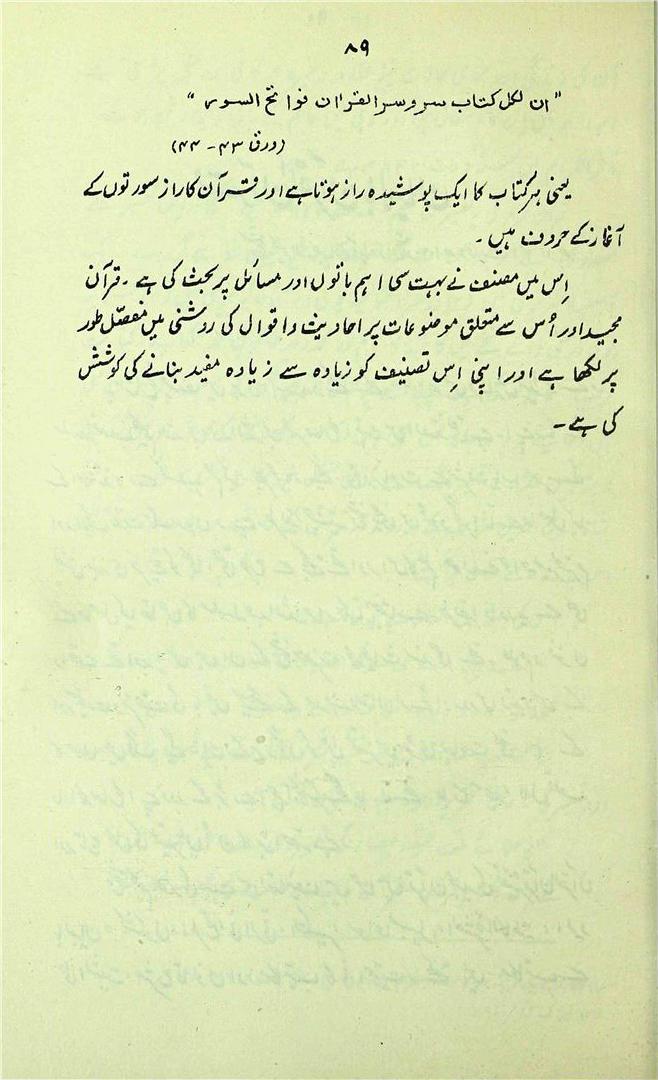 ۸۹
"ان لکل کتاب سر و سر القرآن فواتح السور"
(ورق ۴۳ - ۴۴)
یعنی ہر کتاب کا ایک پوشیدہ راز ہوتا ہے اور قرآن کا راز سورتوں کے
آغاز کے حروف ہیں ۔
اِس میں مصنف نے بہت سی اہم باتوں اور مسائل پر بحث کی ہے ۔ قرآن
مجید اور اُس سے متعلق موضوعات پر احادیث و اقوال کی روشنی میں مفصّل طور
پر لکھا ہے اور اپنی اِس تصنیف کو زیادہ سے زیادہ مفید بنانے کی کوشش
کی ہے ۔